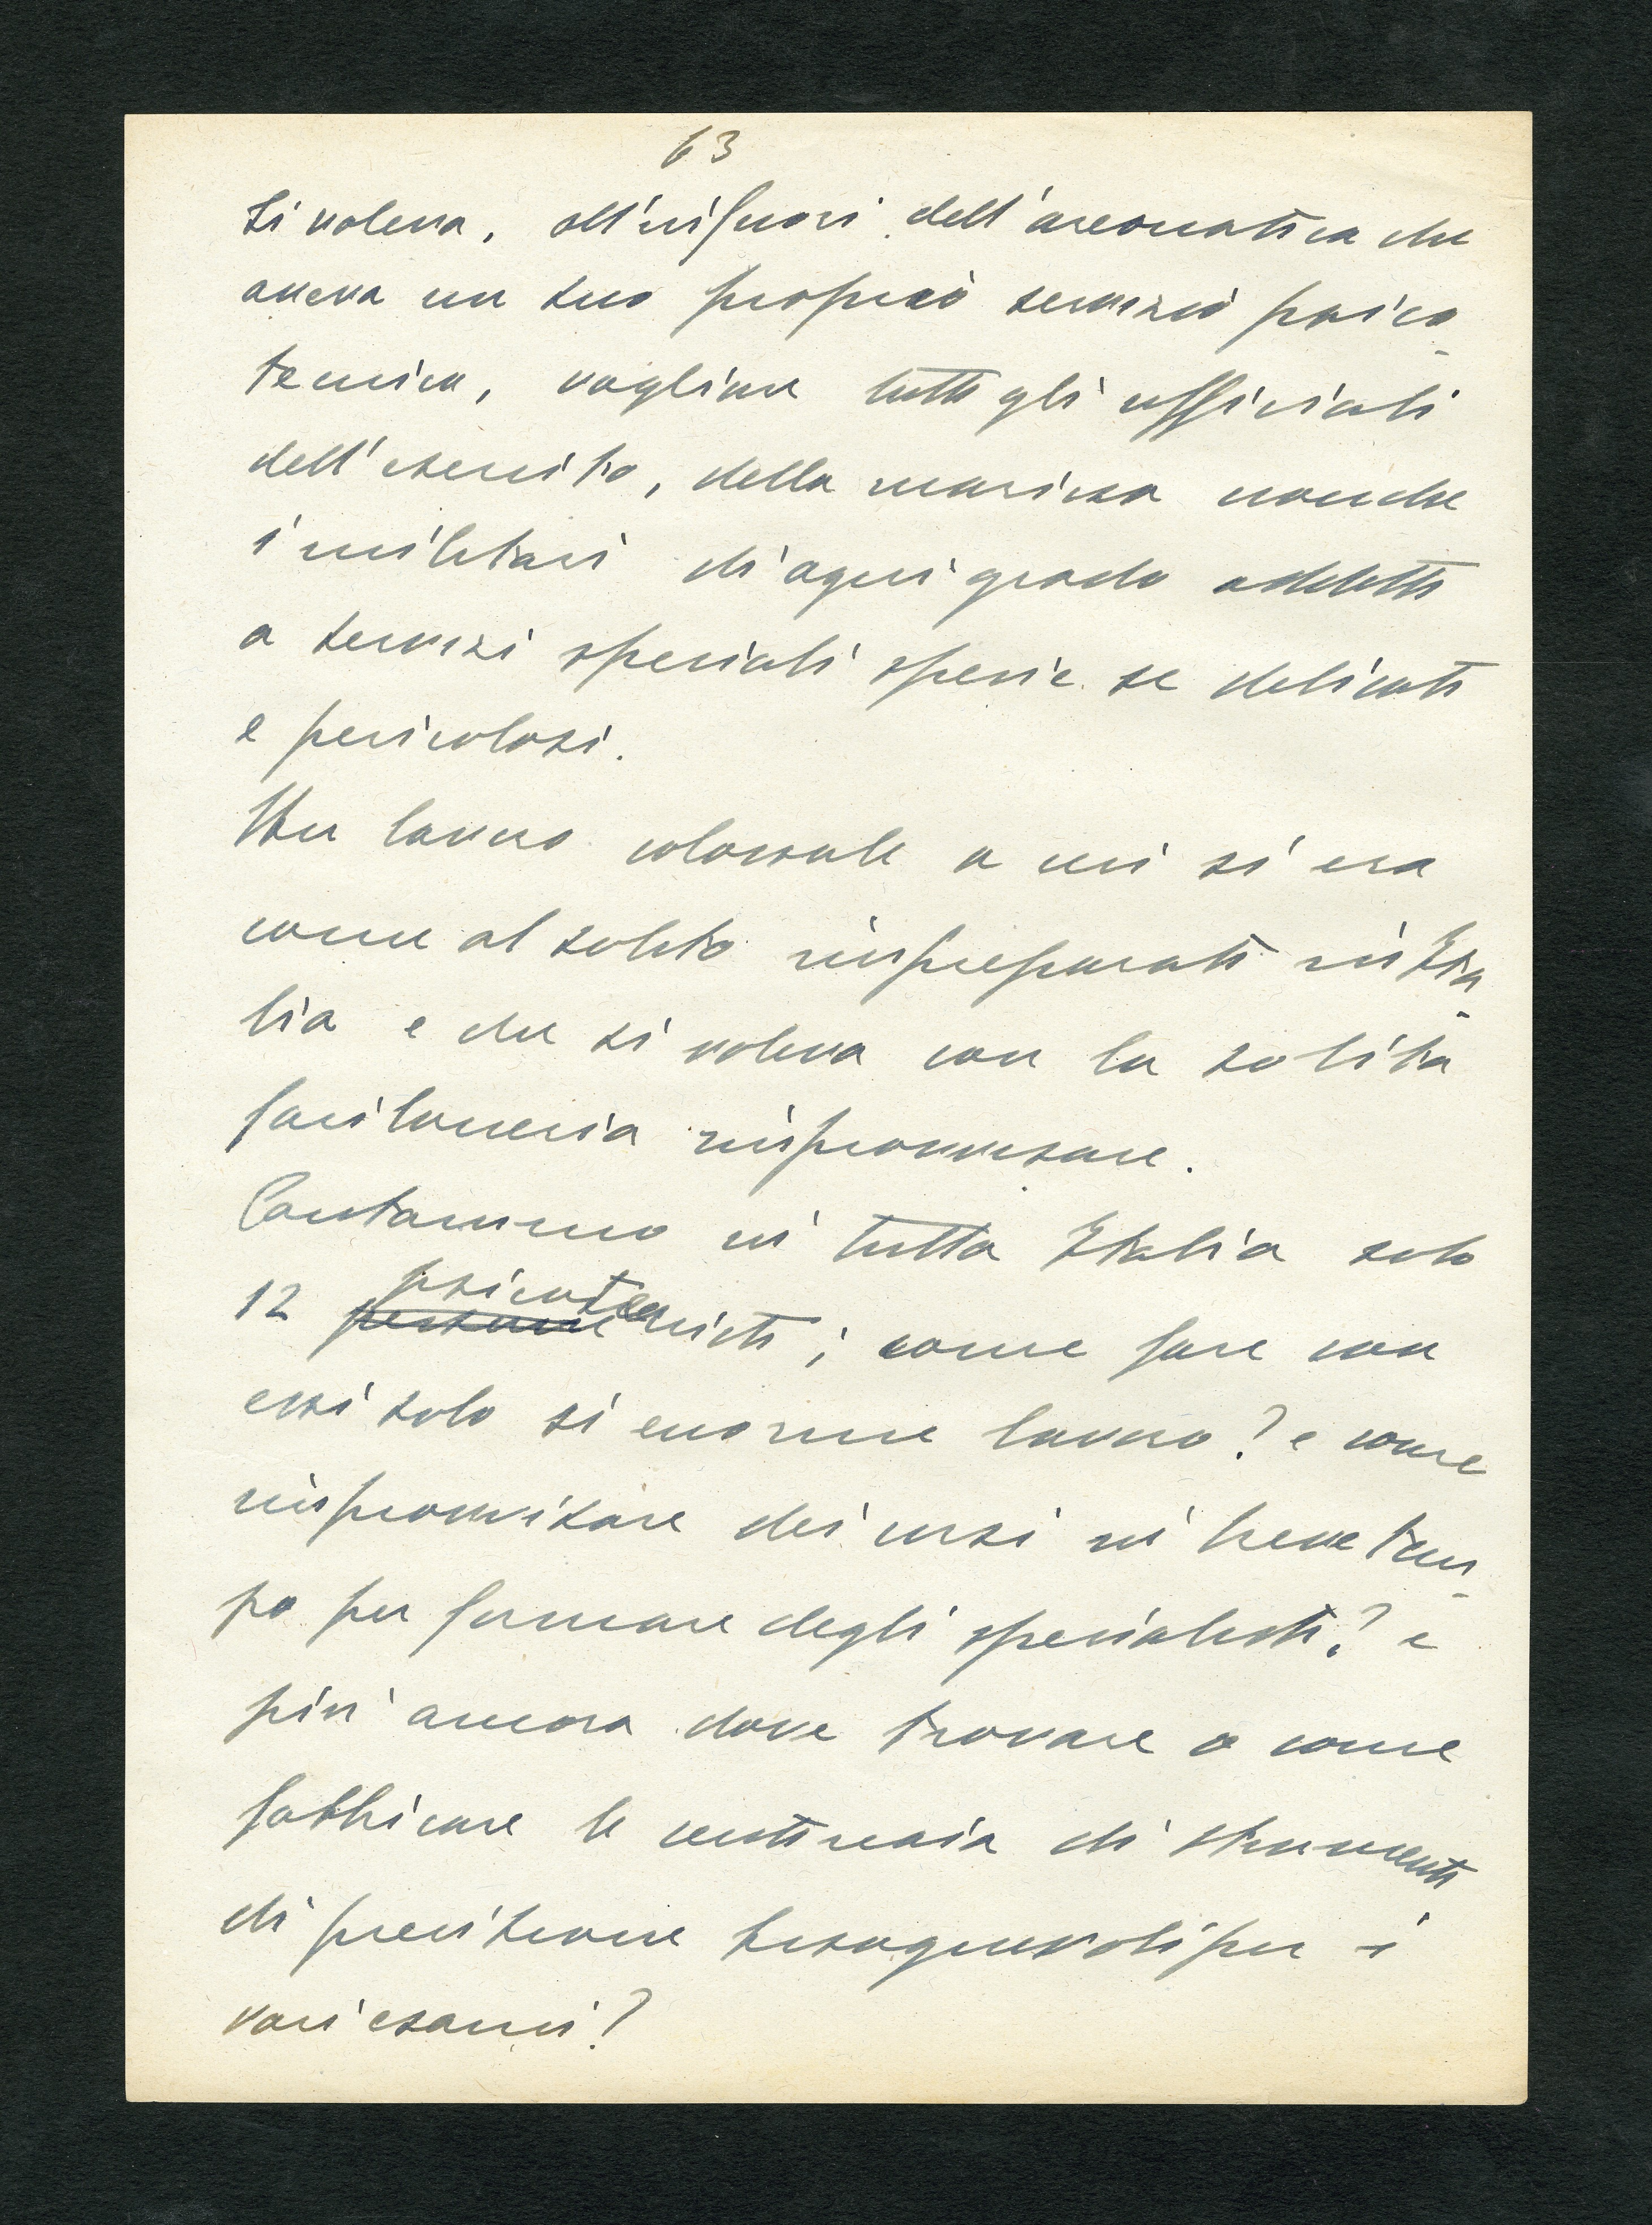 63
Si voleva, all'infuori dell'areonatica che
aveva un suo proprio servizio psico-
tecnico, vagliare tutti gli ufficiali
dell'esercito, della marina nonche
i militari di ogni grado addetti
a servizi speciali specie se delicati
e pericolosi.
Un lavoro colossale a cui si era
come al solito impreparati in Ita-
lia e che si voleva con la solita
faciloneria improvvisare.
Contammo in tutta Italia solo
psicotec
12 persone nicti; come fare con
essi solo si enorme lavoro? e come
improvvisare dei corsi in breve tem-
po per formare degli specialisti? e
più ancora dove trovare o come
fabbricare le centinaia di strumenti
di precisione bisognevoli per i
vari esami?